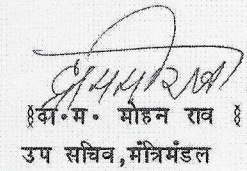 §द०म० मोहन राव §
उप सचिव,मंत्रिमंडल